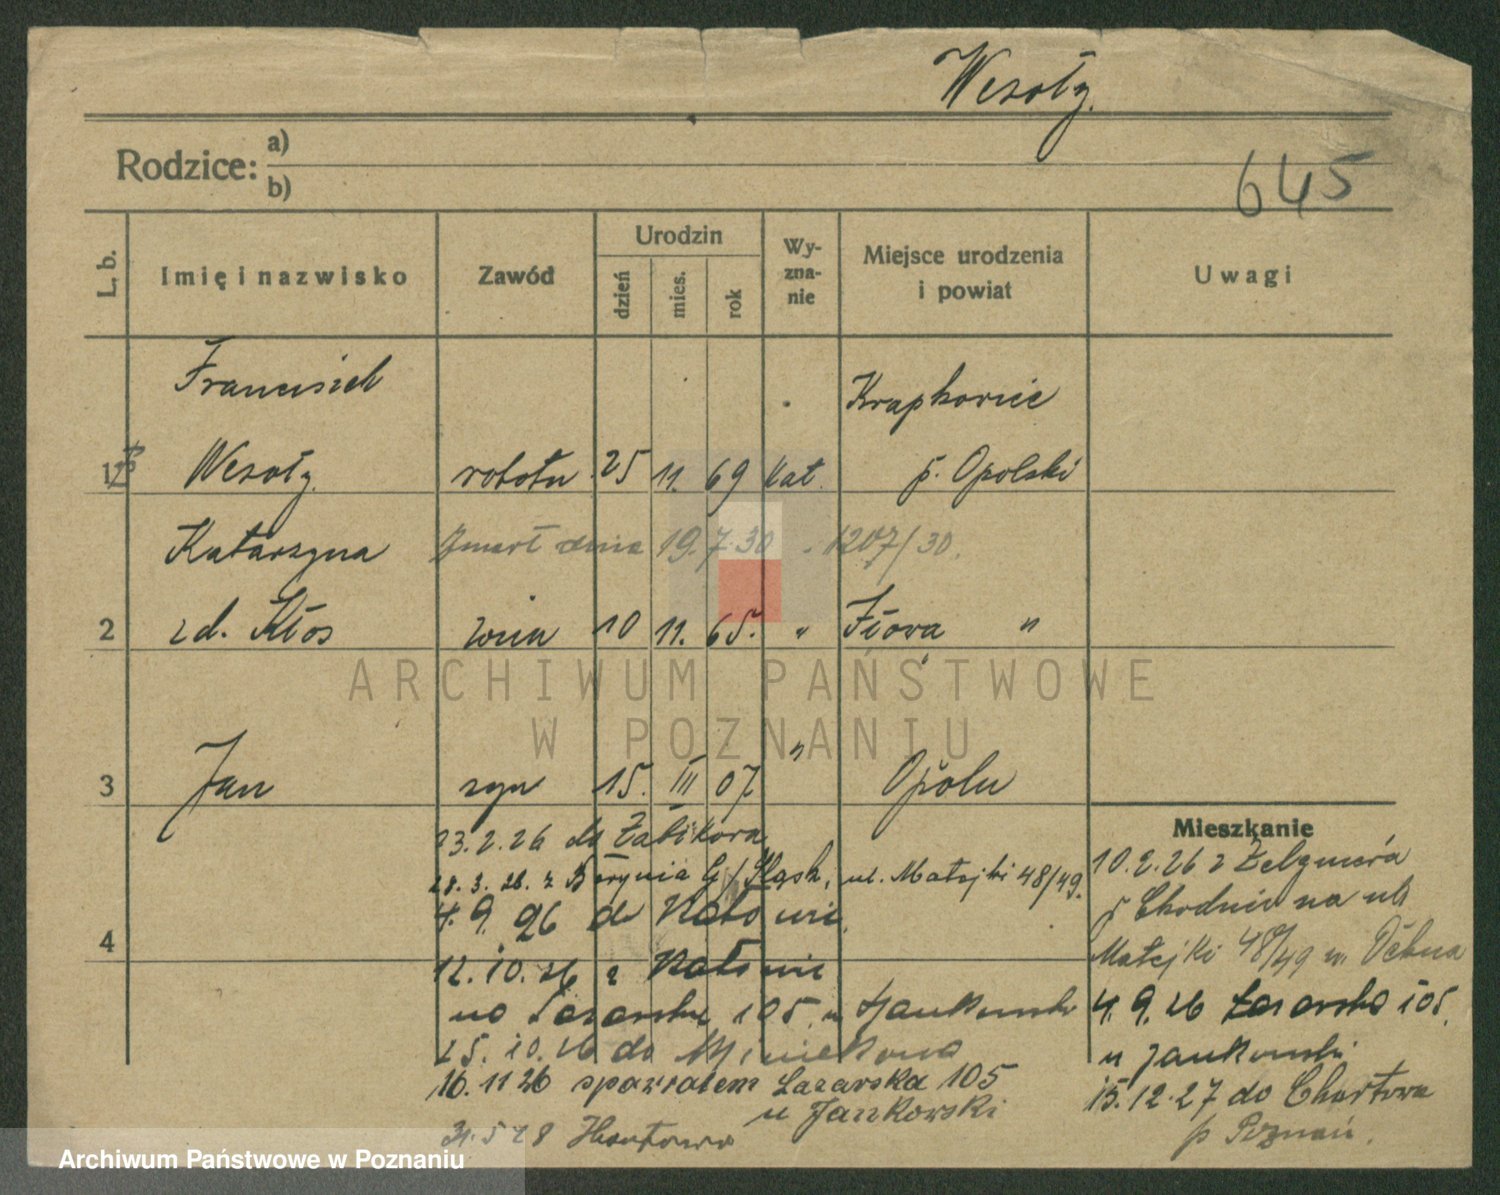 Wesoły.
Rodzice: a)
b)
645
L. b.
Imię i nazwisko
Zawód
Urodzin
dzień
mies.
rok
Wy-
zna-
nie
Miejsce urodzenia
i powiat
Uwagi
Franciszek
Krapkowice
1 Wesoły robotn. 25 11. 69 kat. p. Opolski
Katarzyna Zmarł dnia 19.7.30 . 1207/30.
2 zd. Kłos żona 10 11. 65. " "
3 Jan syn 15. III 07. " Opolu
Mieszkanie
23.2.26 do Żabikowa
28.3.26. z G/Śląsk, ul. Matejki 48/49.
4.9.26 do Katowic
4
12.10.26 z Katowic
na Łazarską 105. u Jankowski
25.10.26 do
16.11.26 spowrotem Lazarska 105
u Jankowski
28
10.2.26 z
na ul.
Matejki 48/49 u.
4.9.26 Łazarska 105.
u Jankowski
15.12.27 do Chartowa
p Poznań.
ARCHIWUM PAŃSTWOWE
W POZNANIU
Archiwum Państwowe w Poznaniu